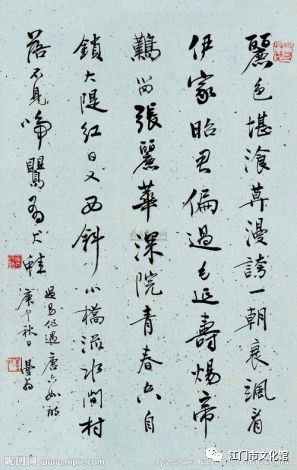 麗色堪湌莫漫誇一朝衰颯看
伊家昭君偏遇毛延壽煬帝
難留張麗華深院青春空自
鎖大隄紅日又西斜小橋流水閒村
落不見啼鶯有吠蛙
庚午秋日
昵图网 www.nipic.com
江门市文化馆